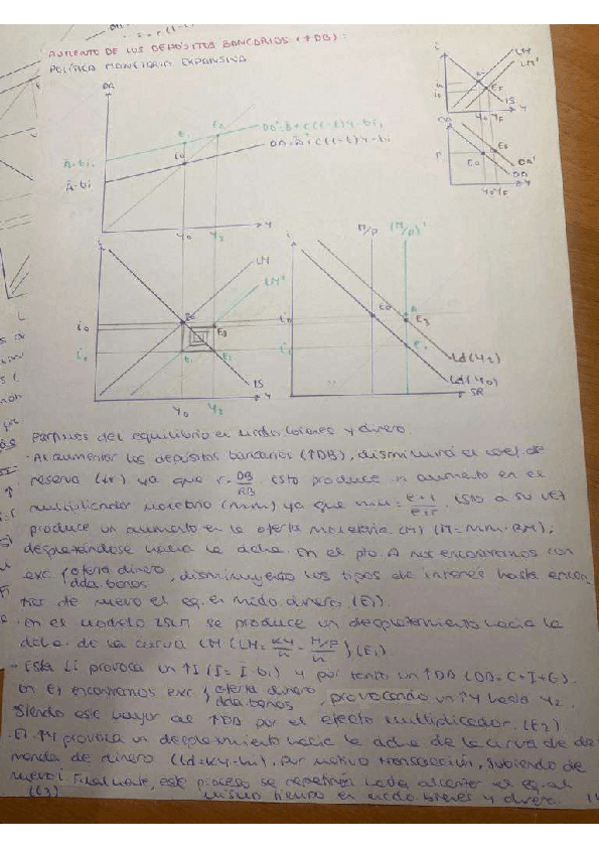 AUMENTO DE LOS DEPÓSITOS BANCARIOS (↑DB):
POLÍTICA MONETARIA EXPANSIVA
DA
DA'=Ā+c(1-t)Y-bi,
DA=Ā+c(1-t)Y-bi
Ā-bi,
Ā-bi
E0
E2
Y0
Y2
Y
i
LM
LM'
IS
E0
E3
E1
E2
i0
i1
Y0
Y2
Y
i
M/P
(M/P)'
E0
A
E3
E1
i0
i1
Ld(Y2)
Ld(Y0)
SR
i
LM
LM'
IS
E0
E3
Y0
YF
Y
DA
DA'
DA
E0
E3
Y0
YF
Y
Partimos del equilibrio en mdo bienes y dinero
- Al aumentar los depósitos bancarios (↑DB), disminuirá el coef. de
reserva (↓r) ya que r= Esto produce un aumento en el
multiplicador monetario (mm) ya que mm= Esto a su vez
produce un aumento en la oferta monetaria (M) (M=mm·BM),
desplazándose hacia la dcha. En el pto. A nos encontramos con
exc. { oferta dinero
dda. bonos , disminuyendo los tipos de interés hasta encon
trar de nuevo el eq. en mdo. dinero (E1).
- En el modelo ISLM se produce un desplazamiento hacia la
dcha. de la curva LM (LM= KY/h - M/P/h) (E1)
- Esta ↓i provoca un ↑I (I=Ī-bi) y por tanto un ↑DA (DA=C+I+G).
En E1 encontramos exc. { oferta dinero
dda. bonos , provocando un ↑Y hacia Y2,
siendo este mayor al ↑DA por el efecto multiplicador. (E2)
- El ↑Y provoca un desplazamiento hacia la dcha de la curva de de
manda de dinero (Ld=KY-hi), por motivo transacción, subiendo de
nuevo i. Finalmente, este proceso se repetirá hasta alcanzar el eq. al
(E3) mismo tiempo en mdo. bienes y dinero.